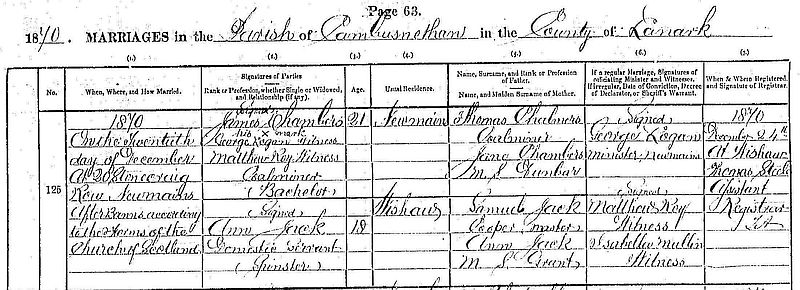 Page 63.
1870. MARRIAGES in the Parish of Cambusnethan in the County of Lanark
(1.) (2.) (3.) (4.) (5.) (6.) (7.)
No.
When, Where, and How Married.
Signatures of Parties
Rank or Profession, whether Single or Widowed, and Relationship (if any).
Age.
Usual Residence.
Name, Surname, and Rank or Profession of Father.
Name, and Maiden Surname of Mother.
If a regular Marriage, Signatures of officiating Minister and Witnesses.
If irregular, Date of Conviction, Decree of Declarator, or Sheriff's Warrant.
When & Where Registered, and Signature of Registrar.
125
1870
On the Twentieth
day of December
At 20 Stonecraig
Row Newmains
After Banns according
to the Forms of the
Church of Scotland
(Signed)
James Chambers
his x mark
George Logan Witness
Matthew Key Witness
Coalminer
(Bachelor)
(Signed)
Ann Jack
Domestic Servant
(Spinster)
21
18
Newmains
Wishaw
Thomas Chalmers
Coalminer
Jane Chambers
M. S. Dunbar
Samuel Jack
Cooper master
Ann Jack
M. S. Grant
Signed
George Logan
minister, Newmains
(Signed)
Matthew Key
Witness
Isabella Mullin
Witness
1870
December 24th
At Wishaw
Thomas Steele
Assistant
Registrar